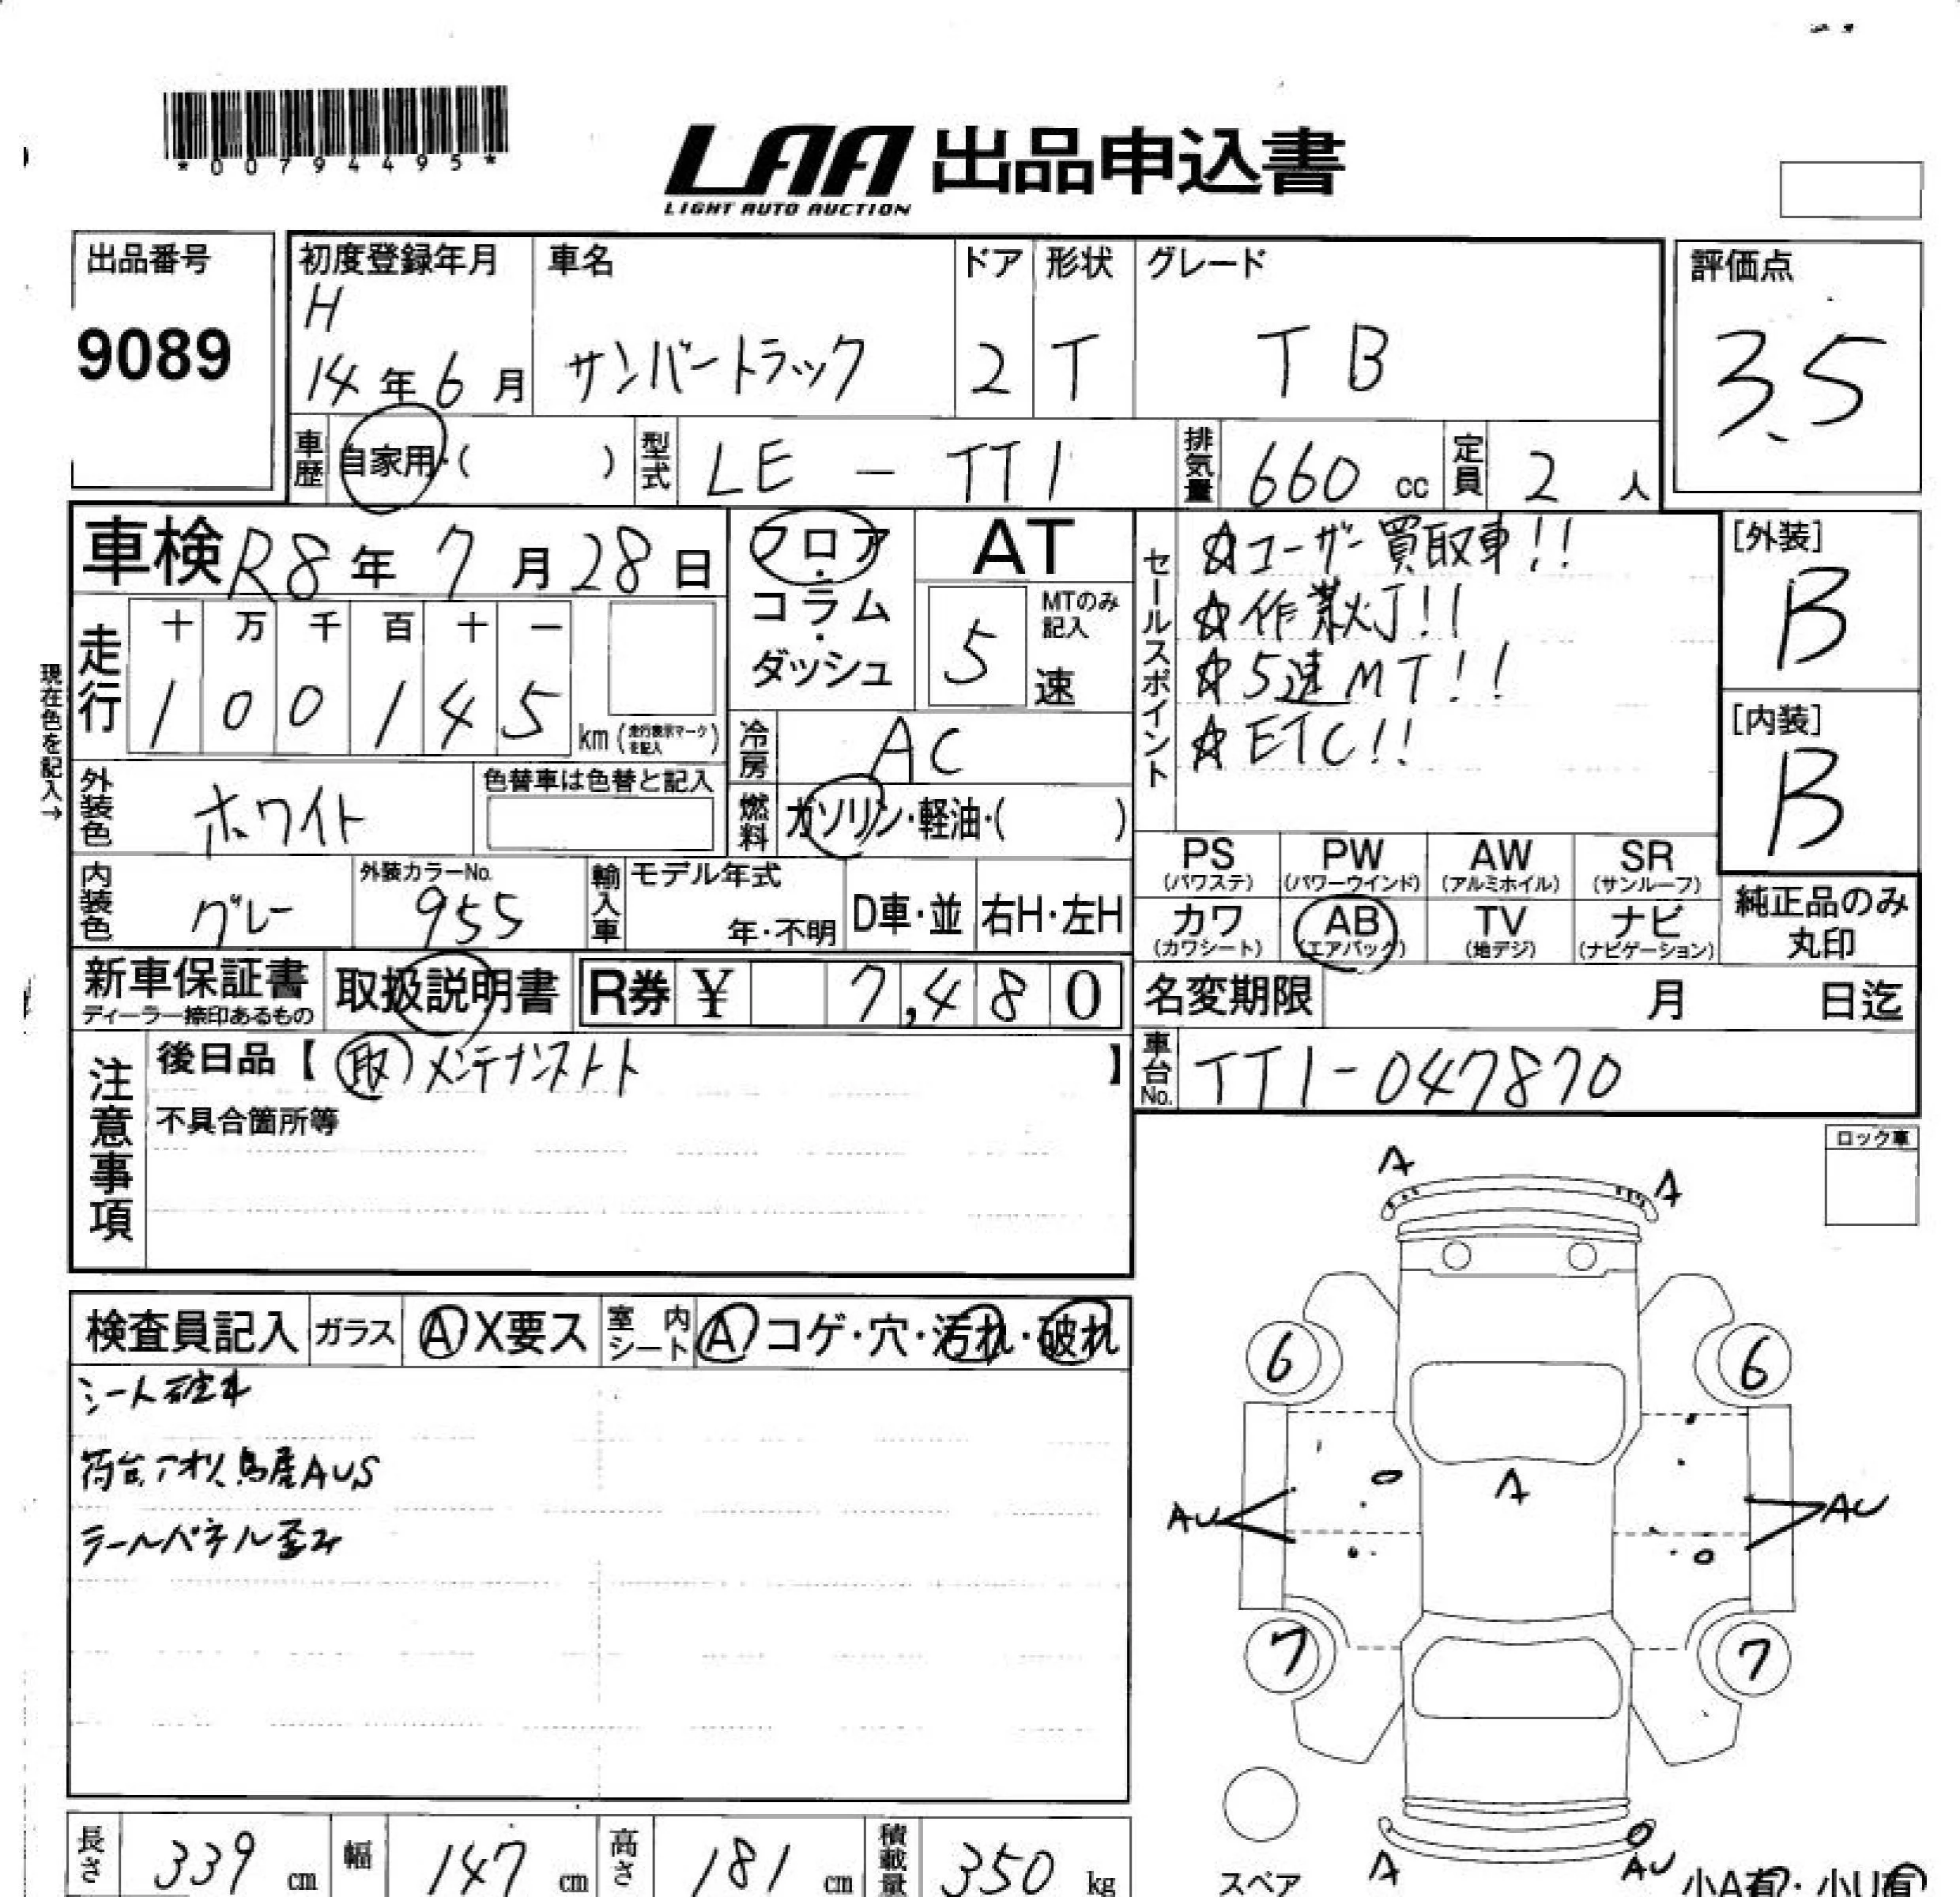 *00794495*
LAA 出品申込書
LIGHT AUTO AUCTION
出品番号
9089
初度登録年月
H
14年6月
車名
サンバートラック
ドア
2
形状
T
グレード
TB
評価点
3.5
車歴
自家用・( )
型式
LE-TT1
排気量
660 cc
定員
2 人
車検 R8年 7月28日
フロア・コラム・ダッシュ
AT
5
MTのみ記入
速
セールスポイント
☆ユーザー買取車!!
☆作業灯!!
☆5速MT!!
☆ETC!!
[外装]
B
[内装]
B
現在色を記入→
走行
十 万 千 百 十 一
1 0 0 1 4 5
km(走行表示マークを記入)
冷房
AC
外装色
ホワイト
色替車は色替と記入
燃料
ガソリン・軽油・( )
内装色
グレー
外装カラーNo.
955
輸入車
モデル年式
年・不明
D車・並
右H・左H
PS
(パワステ)
PW
(パワーウインド)
AW
(アルミホイル)
SR
(サンルーフ)
カワ
(カワシート)
AB
(エアバック)
TV
(地デジ)
ナビ
(ナビゲーション)
純正品のみ
丸印
新車保証書
ディーラー捺印あるもの
取扱説明書
R券 ¥ 7,480
名変期限 月 日迄
注意事項
後日品【 取 メンテナンスノート 】
不具合箇所等
車台No.
TT1-047870
ロック車
検査員記入
ガラス
A X要ス
室内シート
A コゲ・穴・汚れ・破れ
シート破れ
荷台アオリ鳥居AUS
テールパネル歪み
A
A
6
6
A
AU
AU
7
7
A
AU
スペア
小A有・小U有
長さ
339 cm
幅
147 cm
高さ
181 cm
積載量
350 kg